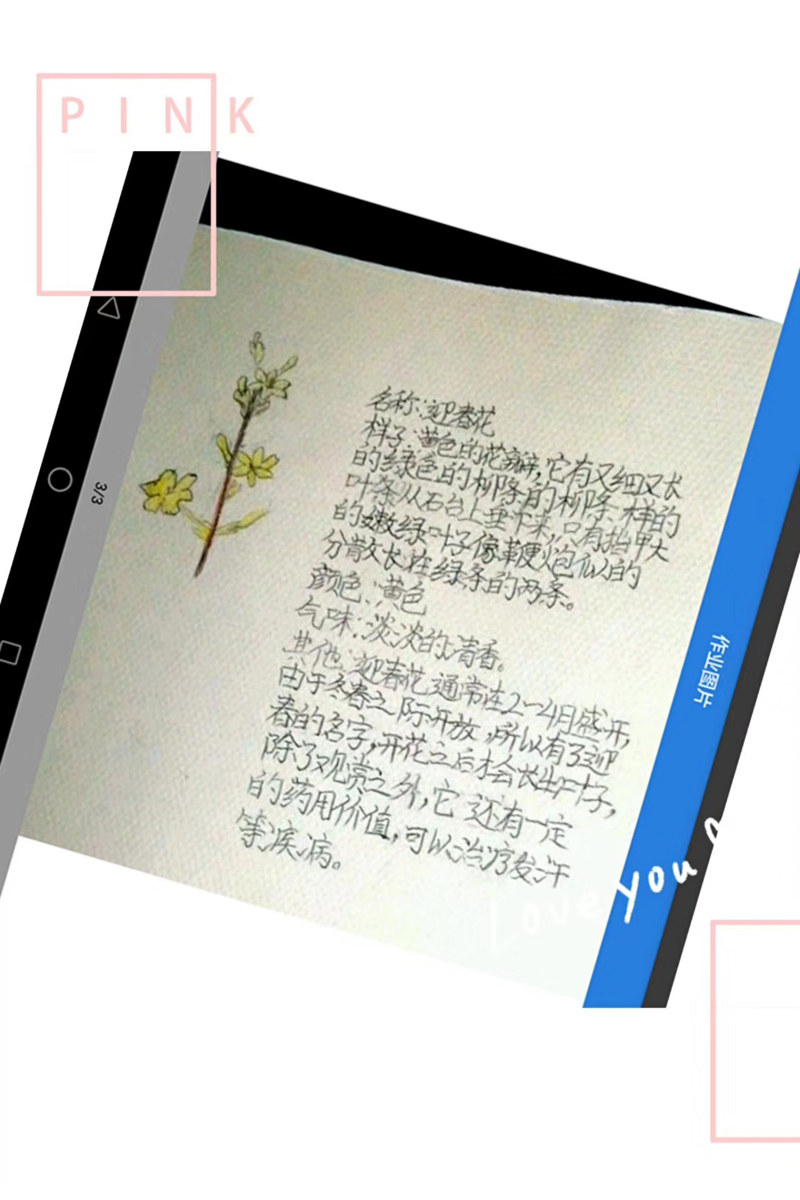 PINK
名称:迎春花
样子:黄色的花瓣,它有又细又长
的绿色的柳条的柳条、一样的
叶条从石台上垂下来,只有指甲大
的嫩绿叶子像鞭炮似的
分散长在绿条的两条。
颜色:黄色
气味:淡淡的清香。
其他:迎春花通常在2-4月盛开,
由于冬春之际开放,所以有了迎
春的名字,开花之后才会长出叶子,
除了观赏之外,它还有一定
的药用价值,可以治疗发汗
等疾病。
3/3
作业图片
Love you